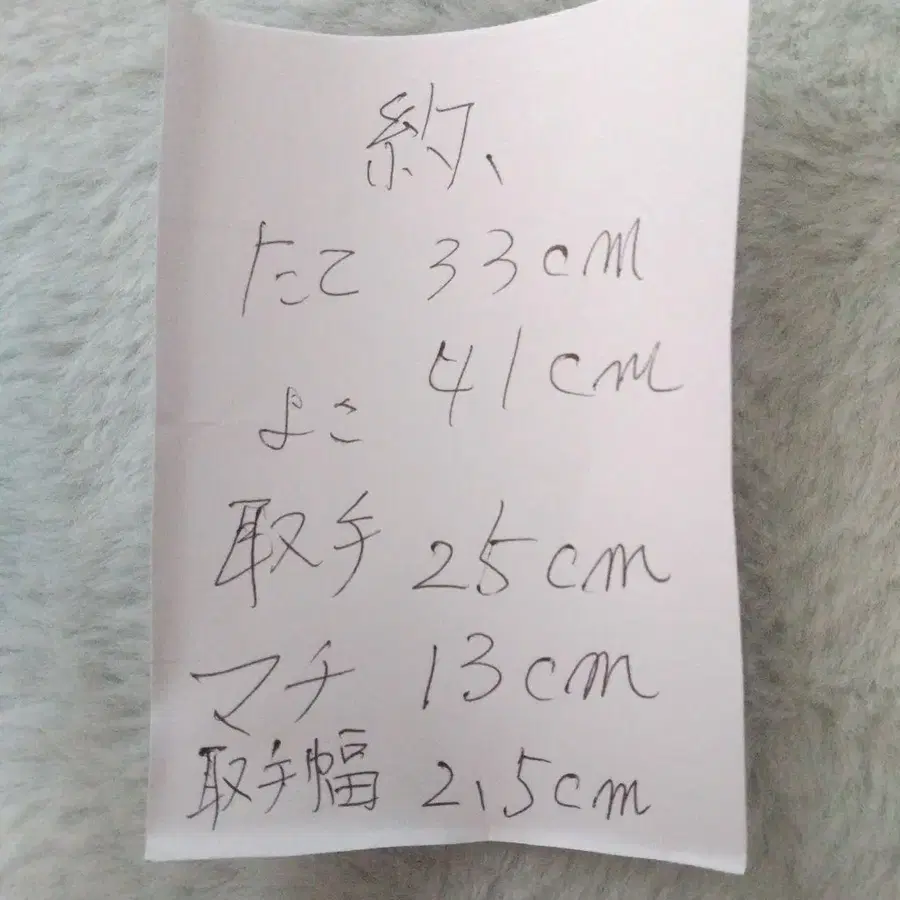 約、
たて 33cm
よこ 41cm
取手 25cm
マチ 13cm
取手幅 2.5cm